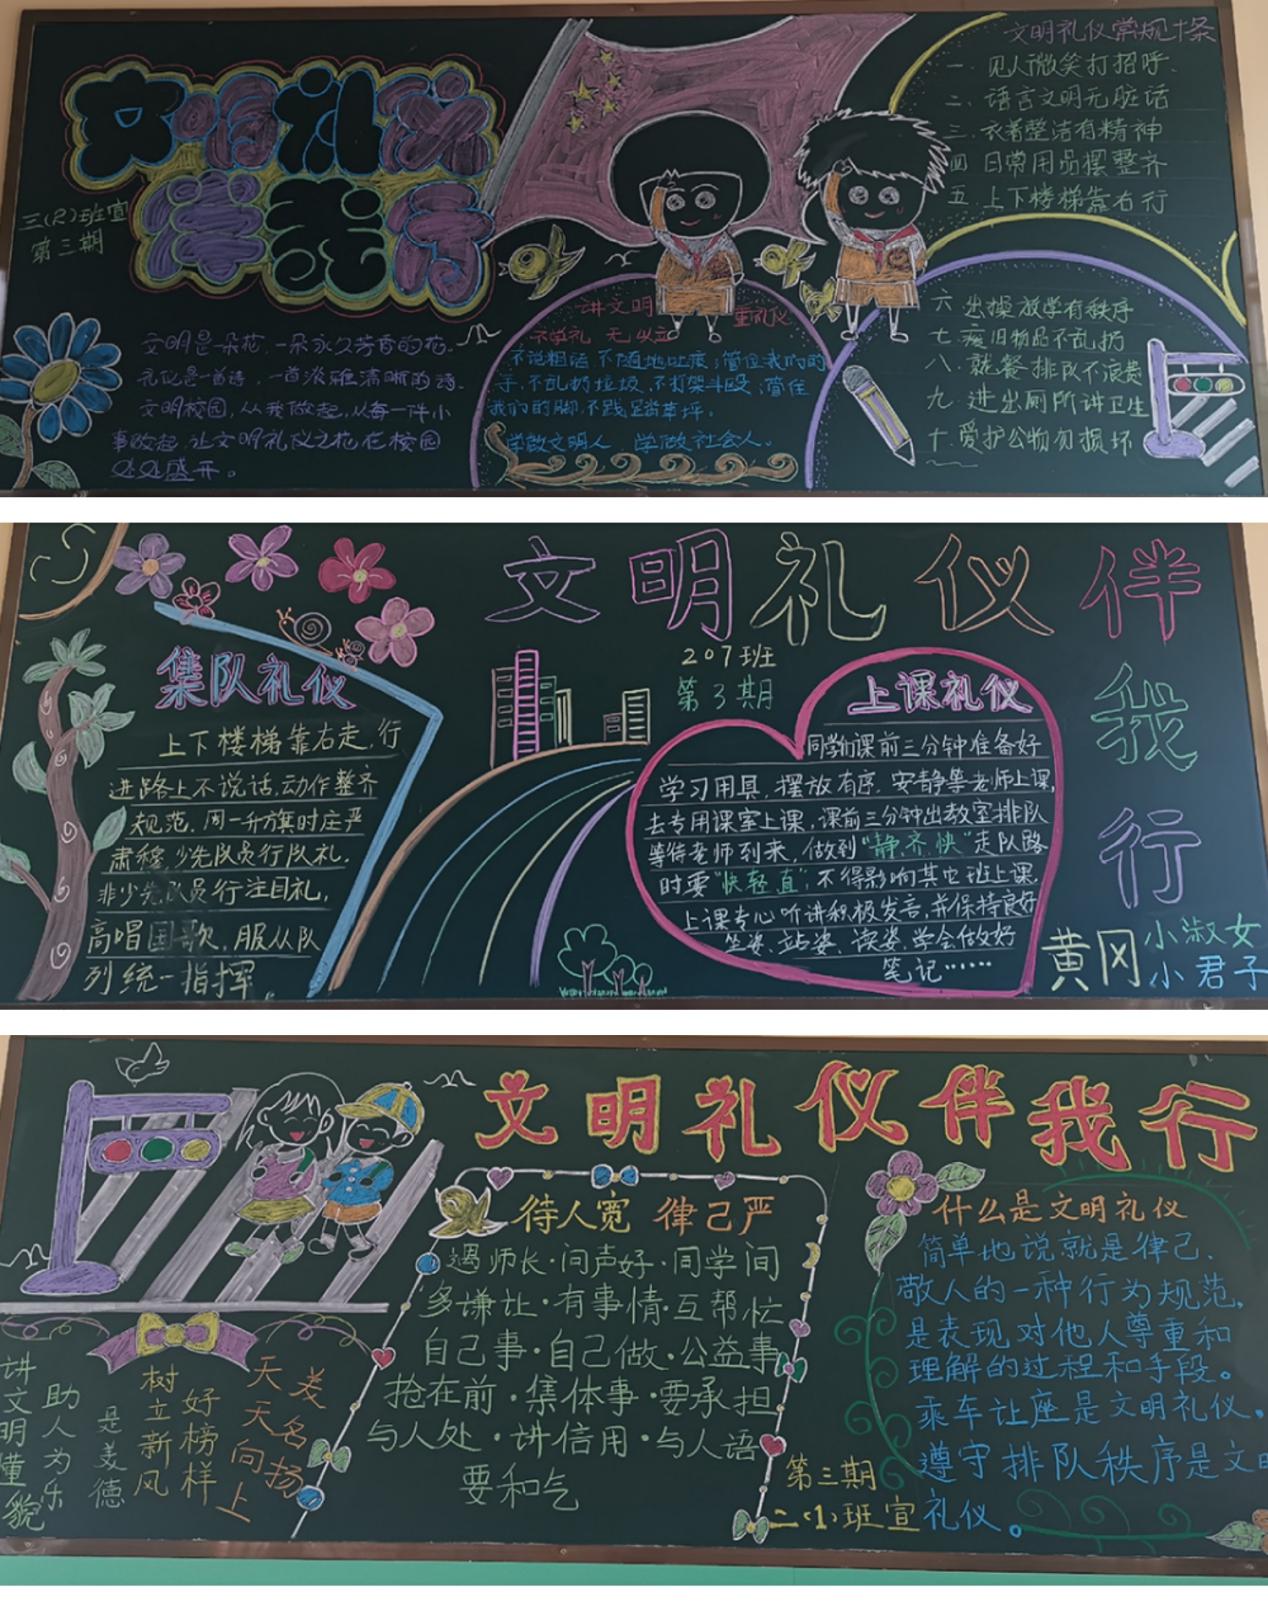 文明礼仪
伴我行
三(2)班宣
第三期
文明是一朵花，一朵永久芳香的花。
礼仪是一首诗，一首淡雅清晰的诗。
文明校园，从我做起，从每一件小
事做起，让文明礼仪之花在校园
处处盛开。
讲文明 重礼仪
不学礼 无以立
不说粗话，不随地吐痰，管住我们的
手，不乱扔垃圾，不打架斗殴，管住
我们的脚，不践踏草坪。
学做文明人 学做社会人。
文明礼仪常规十条
一、见人微笑打招呼、
二、语言文明无脏话
三、衣着整洁有精神
四 日常用品摆整齐
五 上下楼梯靠右行
六 出操放学有秩序
七 废旧物品不乱扔
八、就餐排队不浪费
九 进出厕所讲卫生
十、爱护公物勿损坏
文明礼仪伴
我
行
207班
第3期
集队礼仪
上下楼梯靠右走，行
进路上不说话，动作整齐
规范，周一升旗时庄严
肃穆，少先队员行队礼，
非少先队员行注目礼，
高唱国歌，服从队
列统一指挥。
上课礼仪
同学们课前三分钟准备好
学习用具，摆放有序，安静等老师上课，
去专用课室上课，课前三分钟出教室排队
等待老师到来，做到“静、齐、快”走队路
时要“快、轻、直”，不得影响其它班上课，
上课专心听讲积极发言，并保持良好
坐姿、站姿、读姿，学会做好
笔记……
黄冈
小淑女
小君子
文明礼仪伴我行
讲文明懂 貌
助人为乐
是美德
树立新风
好榜样
天天向上
美名扬
待人宽 律己严
遇师长·问声好·同学间
多谦让·有事情·互帮忙
自己事·自己做·公益事
抢在前·集体事·要承担
与人处·讲信用·与人语
要和气
第三期
二(1)班宣
什么是文明礼仪
简单地说就是律己、
敬人的一种行为规范，
是表现对他人尊重和
理解的过程和手段。
乘车让座是文明礼仪，
遵守排队秩序是文明
礼仪。